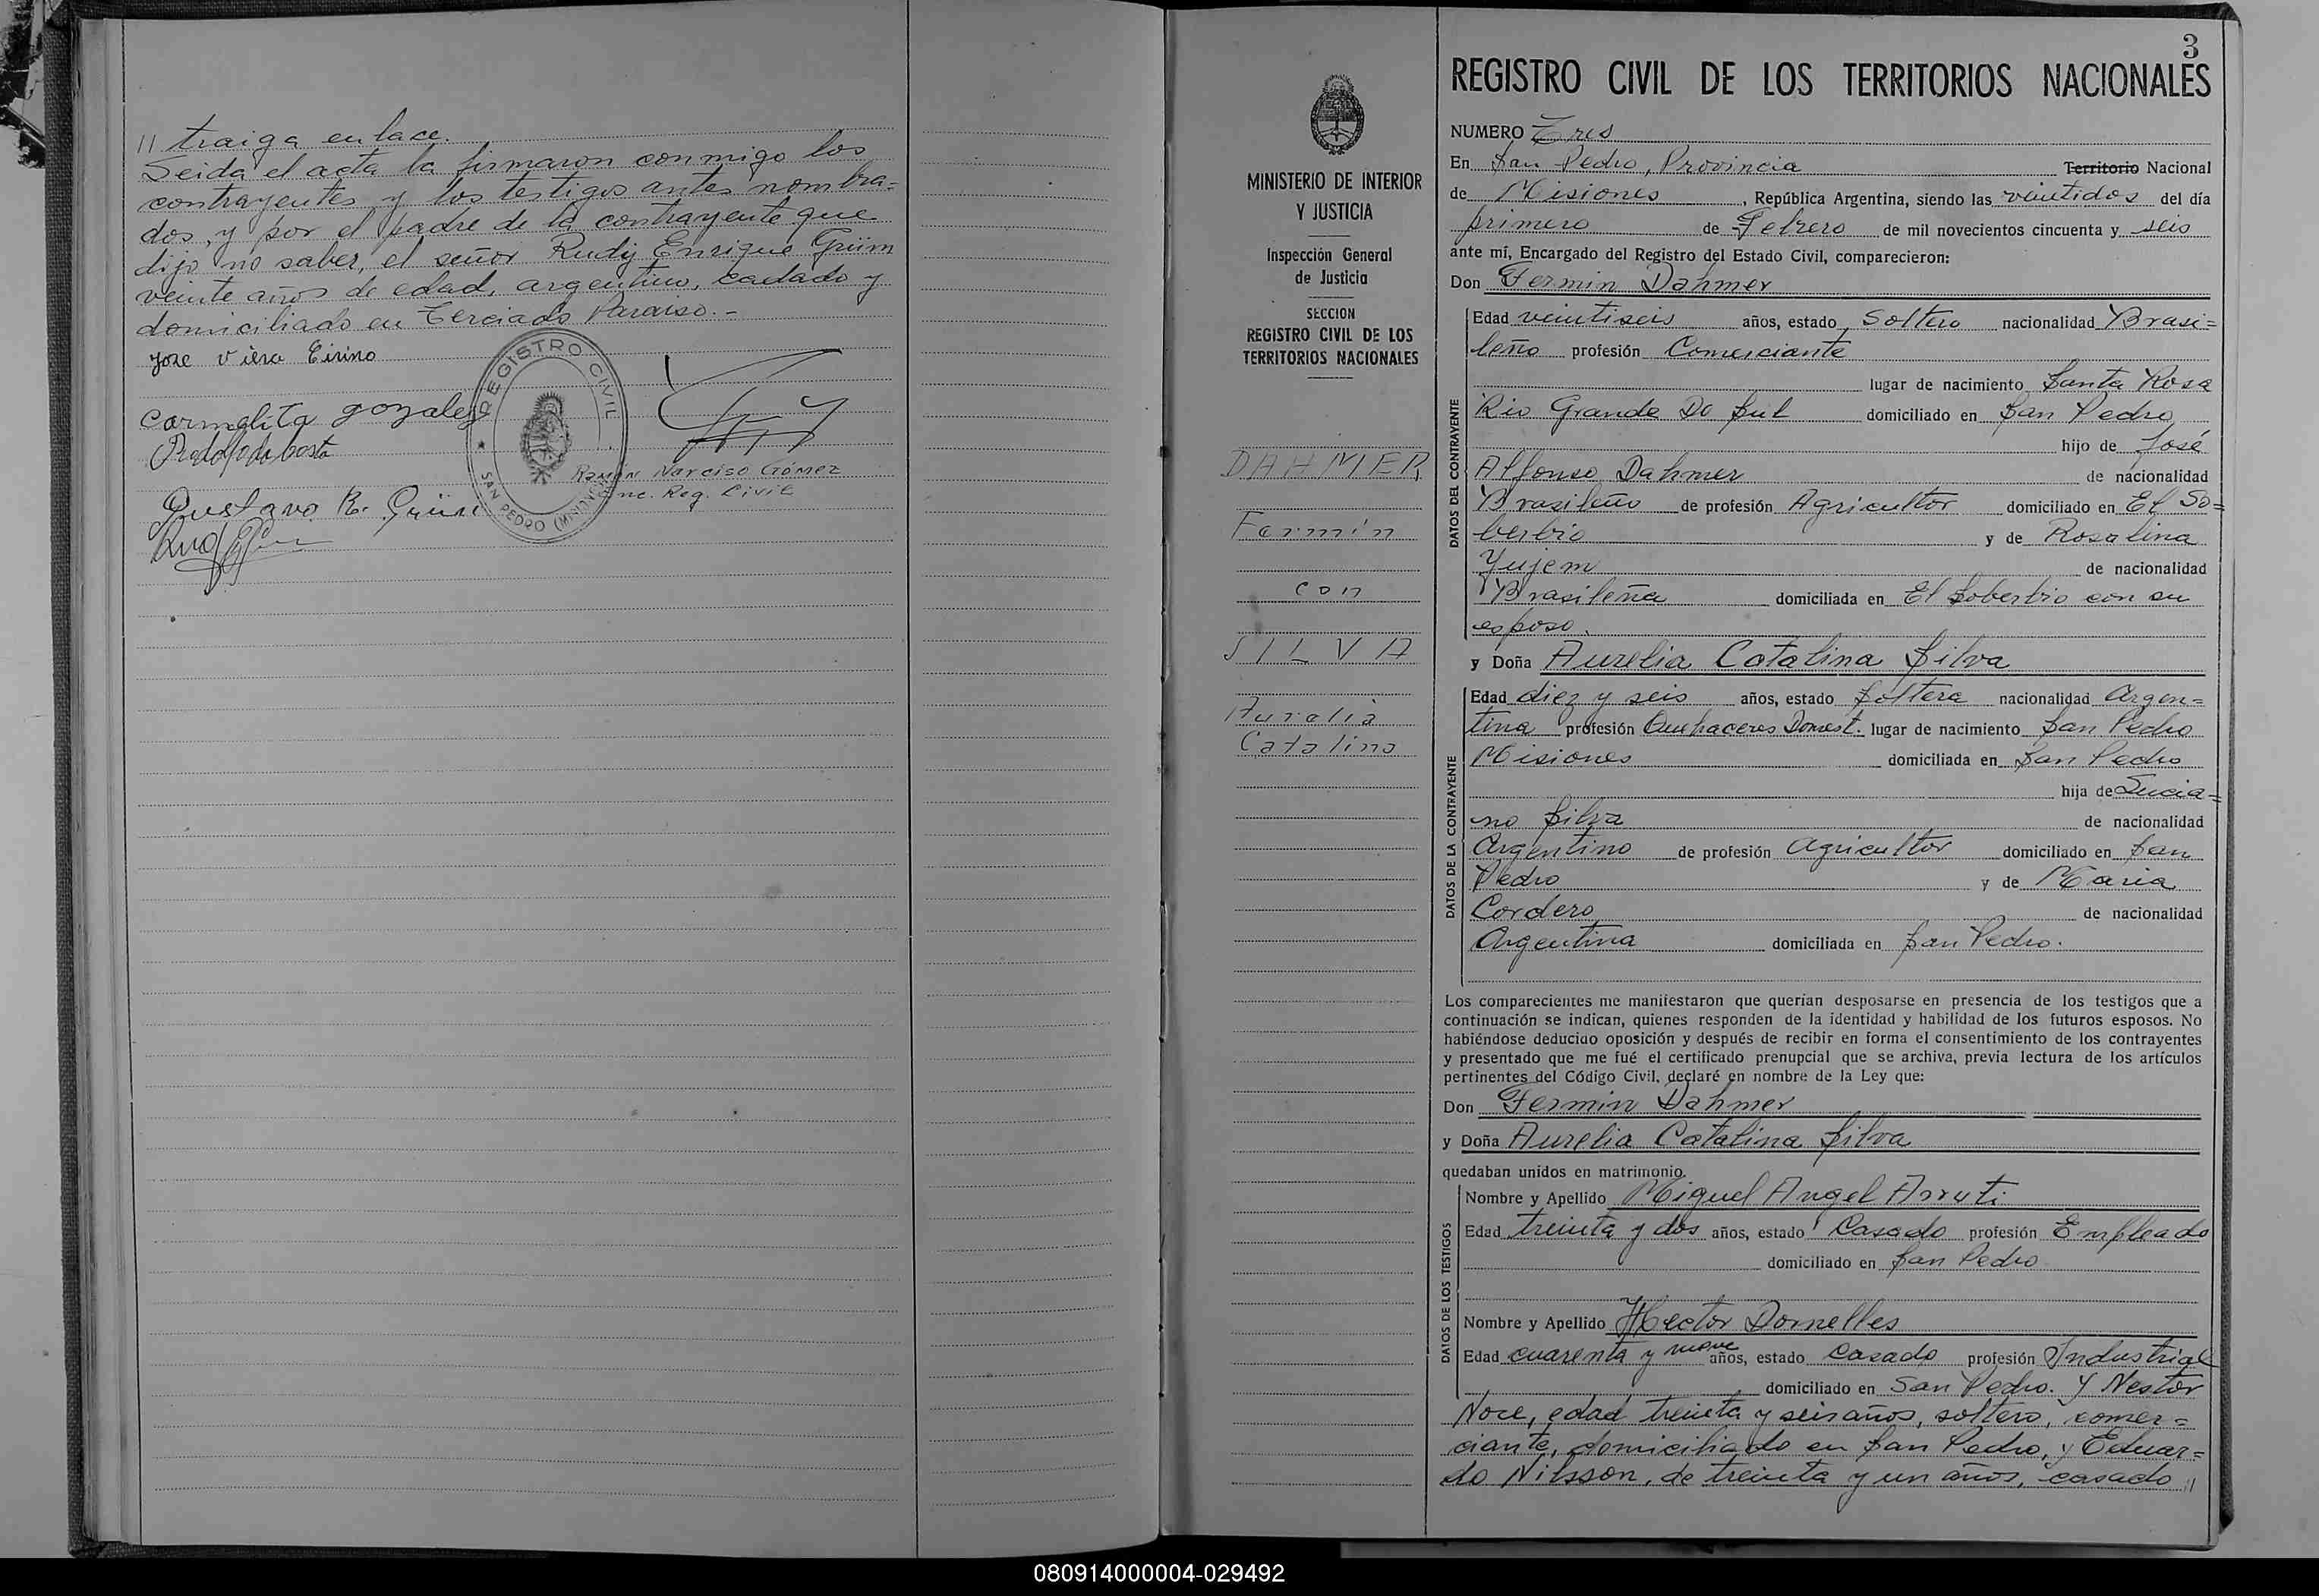 // traiga enlace.
Leida el acta la firmaron conmigo los
contrayentes y los testigos antes nombra-
dos, y por el padre de la contrayente que
dijo no saber, el señor Rudy Enrique Grüm
veinte años de edad, argentino, casado y
domiciliado en Terciado Paraiso.-
Jose Viera Eirino
Carmelita gonzalez
Rodolfo da Costa
Gustavo R. Grün
REGISTRO CIVIL
SAN PEDRO (MISIONES)
Ramón Narciso Gómez
Enc. Reg. Civil
3
MINISTERIO DE INTERIOR
Y JUSTICIA
Inspección General
de Justicia
SECCION
REGISTRO CIVIL DE LOS
TERRITORIOS NACIONALES
DAHMER
Fermín
con
SILVA
Aurelia
Catalina
REGISTRO CIVIL DE LOS TERRITORIOS NACIONALES
NUMERO Tres
En San Pedro, Provincia Territorio Nacional
de Misiones, República Argentina, siendo las veintidos del día
primero de Febrero de mil novecientos cincuenta y seis
ante mí, Encargado del Registro del Estado Civil, comparecieron:
Don Fermin Dahmer
DATOS DEL CONTRAYENTE
Edad veintiseis años, estado Soltero nacionalidad Brasi=
leño profesión Comerciante
lugar de nacimiento Santa Rosa
Rio Grande Do Sul domiciliado en San Pedro
hijo de José
Alfonso Dahmer de nacionalidad
Brasileño de profesión Agricultor domiciliado en El So=
berbio y de Rosalina
Yujem de nacionalidad
Brasileña domiciliada en El Soberbio con su
esposo.
y Doña Aurelia Catalina Silva
DATOS DE LA CONTRAYENTE
Edad diez y seis años, estado Soltera nacionalidad Argen=
tina profesión Quehaceres Domest. lugar de nacimiento San Pedro
Misiones domiciliada en San Pedro
hija de Lucia=
no Silva de nacionalidad
Argentino de profesión Agricultor domiciliado en San
Pedro y de Maria
Cordero de nacionalidad
Argentina domiciliada en San Pedro.
Los comparecientes me manifestaron que querían desposarse en presencia de los testigos que a
continuación se indican, quienes responden de la identidad y habilidad de los futuros esposos. No
habiéndose deducido oposición y después de recibir en forma el consentimiento de los contrayentes
y presentado que me fué el certificado prenupcial que se archiva, previa lectura de los artículos
pertinentes del Código Civil, declaré en nombre de la Ley que:
Don Fermin Dahmer
y Doña Aurelia Catalina Silva
quedaban unidos en matrimonio.
DATOS DE LOS TESTIGOS
Nombre y Apellido Miguel Angel Arruti
Edad treinta y dos años, estado Casado profesión Empleado
domiciliado en San Pedro
Nombre y Apellido Hector Dornelles
Edad cuarenta y nueve años, estado Casado profesión Industrial
domiciliado en San Pedro. Y Nestor
Noce, edad treinta y seis años, soltero, comer=
ciante, domiciliado en San Pedro, y Eduar=
do Nilsson, de treinta y un años, casado //
080914000004-029492